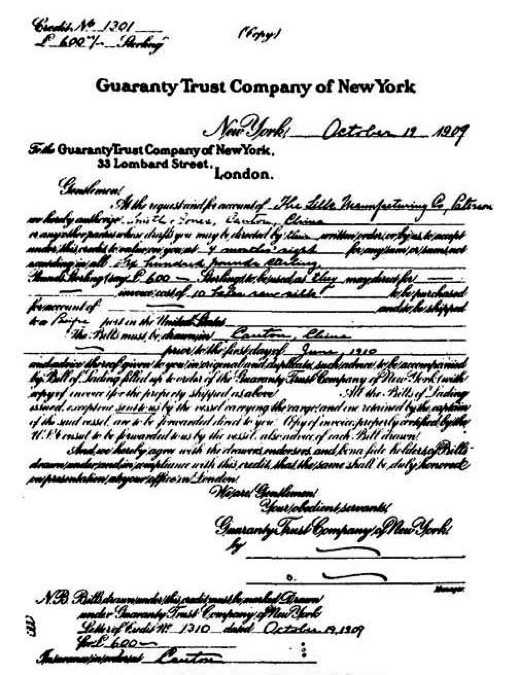 Credit Nº 1301
£ 600 —/— Sterling
(Copy)
Guaranty Trust Company of New York
New York, October 19 1909
To the Guaranty Trust Company of New York,
33 Lombard Street,
London.
Gentlemen,
At the request and for account of The Silk Manufacturing Co, Paterson
we hereby authorize Smith & Jones, Canton, China
or any other parties whose drafts you may be directed by their written order, or by us, to accept
under this credit to value on you, at 4 months' sight for any sum, or sums, not
exceeding in all Six hundred pounds sterling
Pounds Sterling (say £ 600 — Sterling) to be used as they may direct for —
— invoice cost of 10 bales raw silk to be purchased
for account of and to be shipped
to a Pacific port in the United States
The Bills must be drawn in Canton, China
— prior to the first day of June 1910
and advice thereof given to you in original and duplicate, such advice to be accompanied
by Bill of Lading filled up to order of the Guaranty Trust Company of New York (with
copy of invoice) for the property shipped as above All the Bills of Lading
issued, except one sent to us by the vessel carrying the cargo, and one retained by the captain
of the said vessel, are to be forwarded direct to you. Copy of invoice properly certified by the
U.S. Consul to be forwarded to us by the vessel, also advice of each Bill drawn.
And we hereby agree with the drawers, endorsers and bona fide holders of Bills
drawn under and in compliance with this credit, that the same shall be duly honored
on presentation at your office in London.
We are, Gentlemen,
Your obedient servants,
Guaranty Trust Company of New York.
by
Manager
N.B. Bills drawn under this credit must be marked Drawn
under Guaranty Trust Company of New York
Letter of Credit Nº 1310 dated October 19, 1909
for £ 600 —
Insurance in order Canton